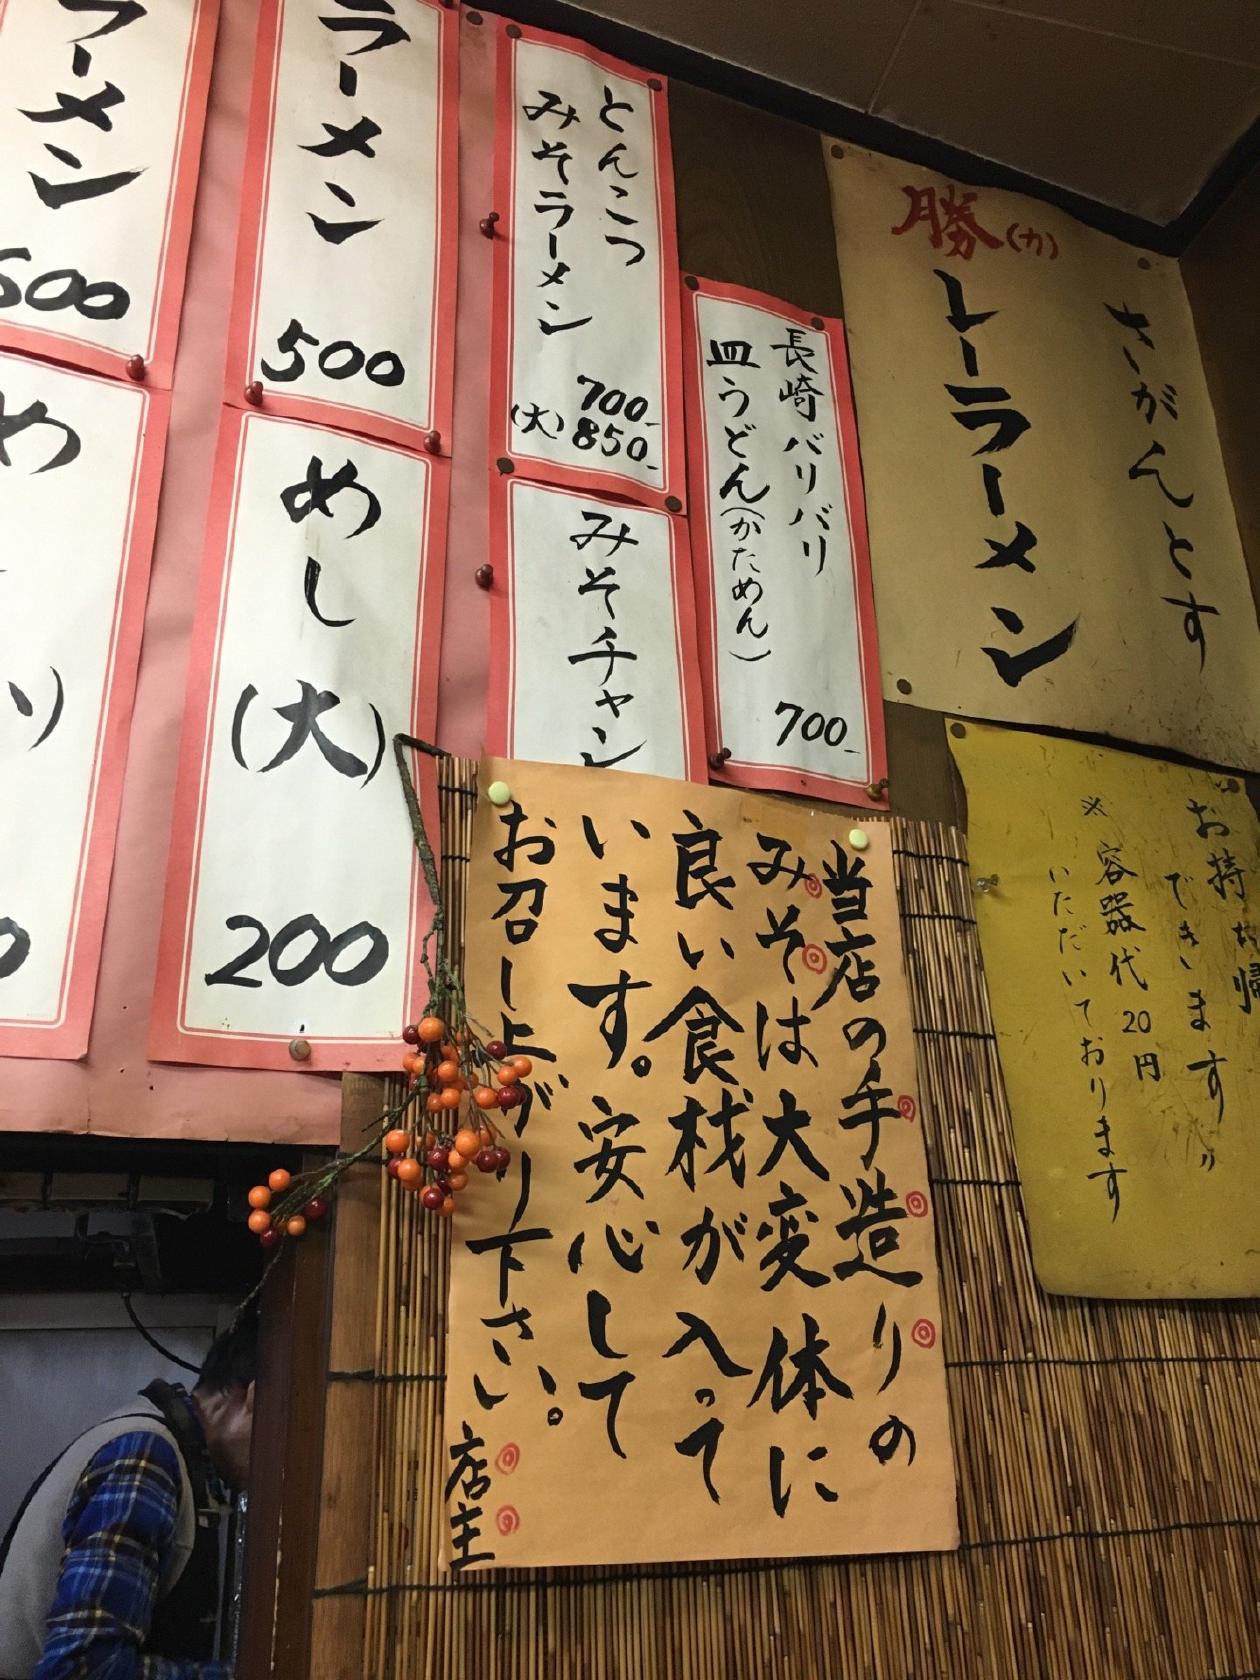 さがんとす
勝(カ)レーラーメン
お持
できます〃
※容器代20円
いただいております
長崎バリバリ
皿うどん(かためん)
700-
とんこつ
みそラーメン
700-
(大)850-
みそチャン
ラーメン
500
めし(大)
200
ラーメン
500
め
当店の手造りの
みそは大変体に
良い食材が入って
います。安心して
お召し上がり下さい。
店主